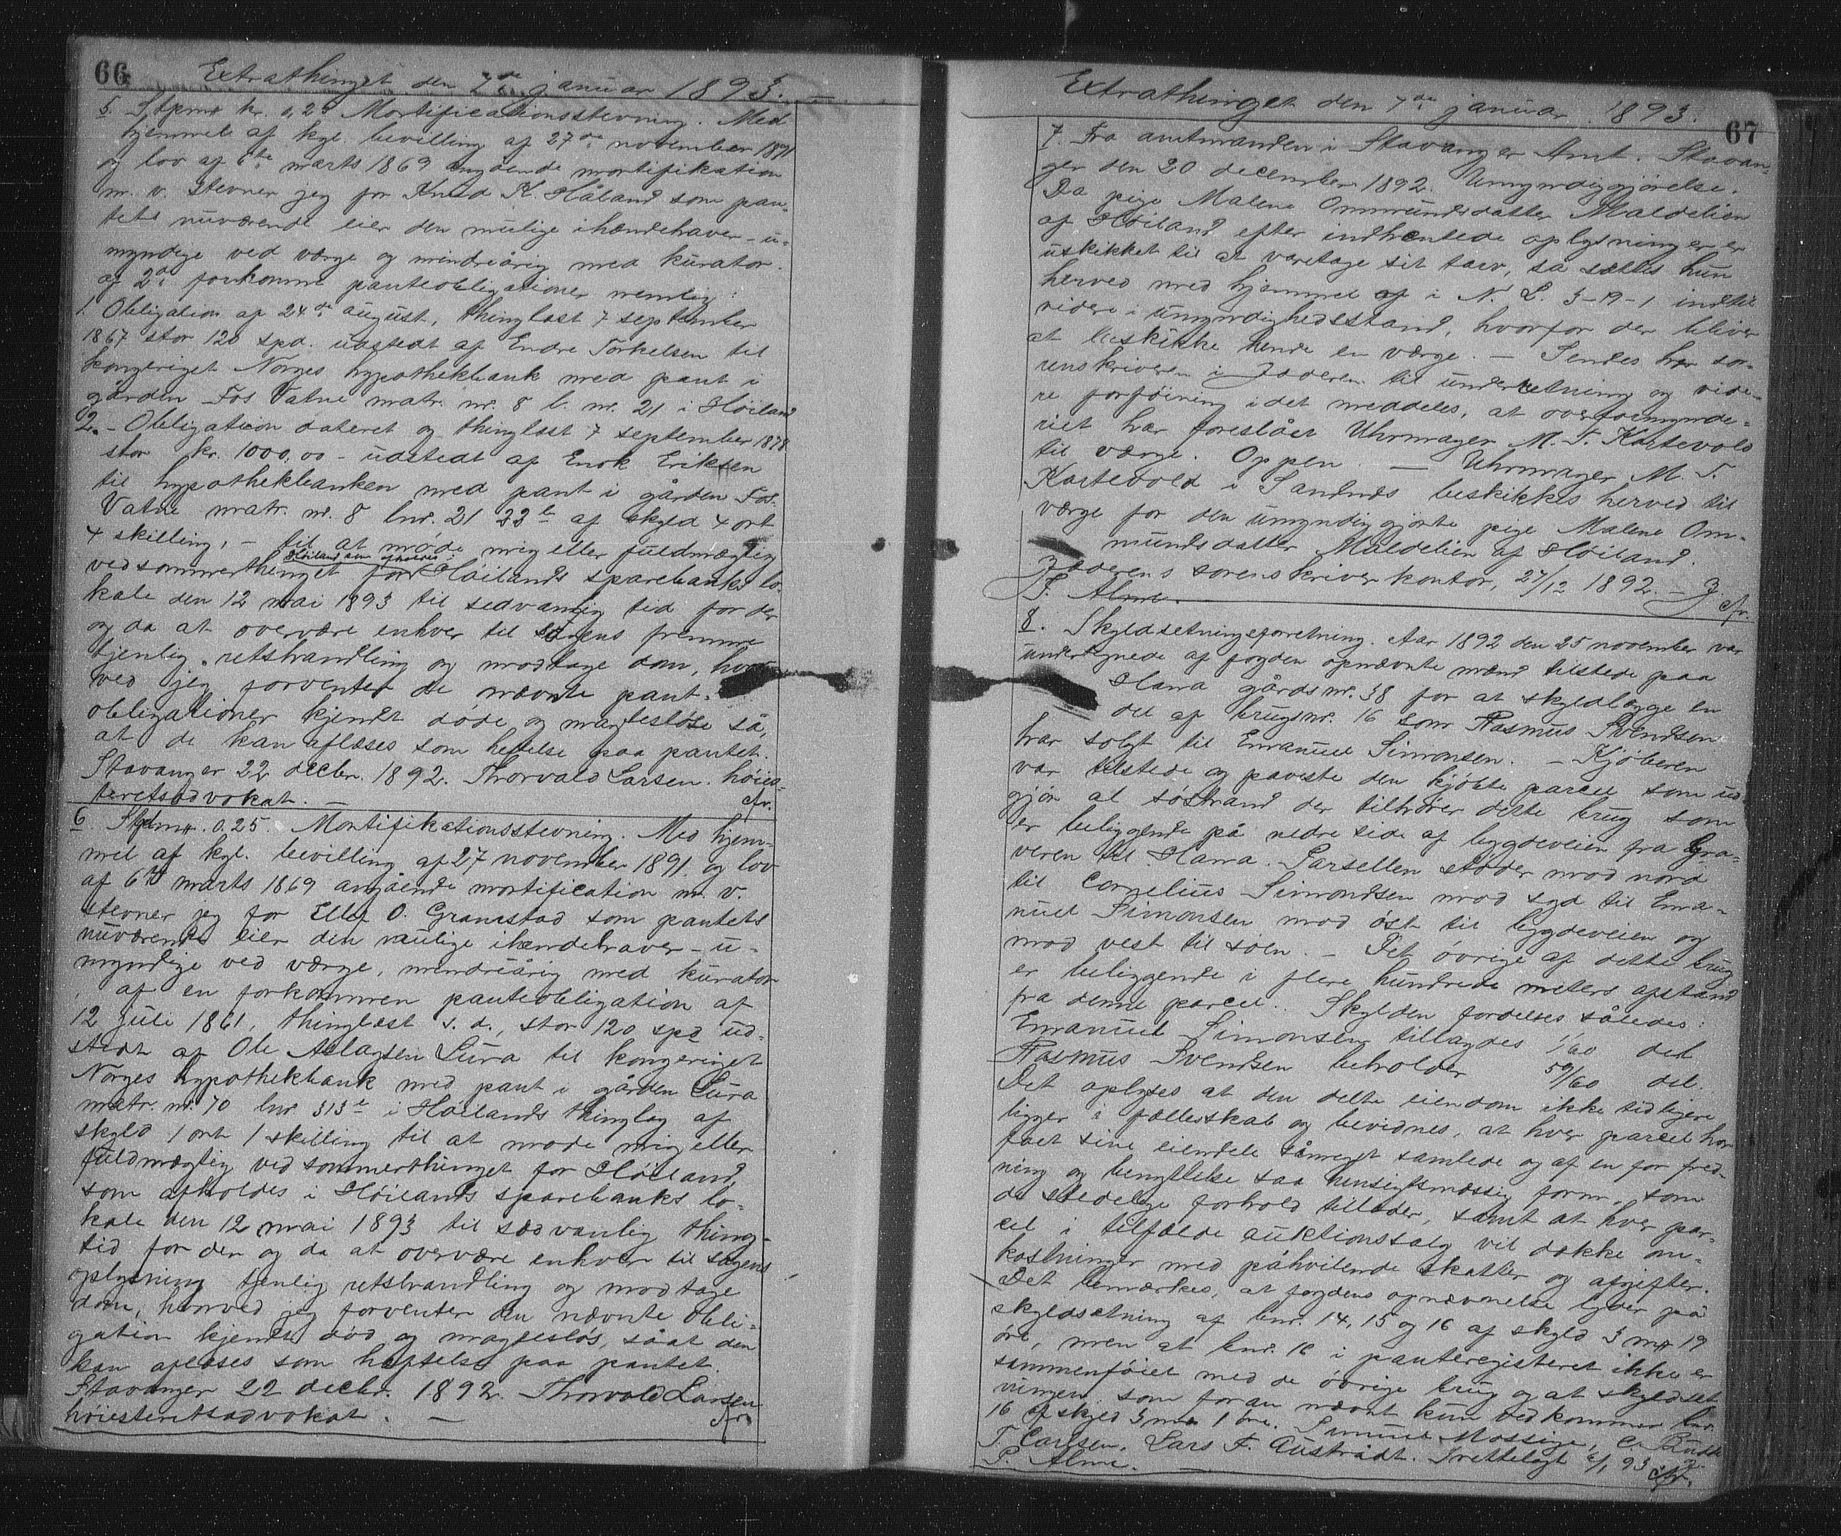 66
Extrathinget den 7de januar 1893.
5. Stpm kr. 0,25 Mortificationsstevning. Med
hjemmel af kgl. bevilling af 27de november 1891
og lov af 6te marts 1869 angående mortifikation
m. v. stevner jeg for Knud K. Håland som pan-
tets nuværende eier den mulige ihændehaver - u-
myndige ved værge og mindreårig med kurator.
af 2de forkomne panteobligationer nemlig:
1. Obligation af 24de august, thinglæst 7 september
1867 stor 120 spd. udstedt af Endre Torkelsen til
kongeriget Norges hypothekbank med pant i
gården Fos Vatne matr. nr. 8 l. nr. 21 i Høiland
2. - Obligation dateret og thinglæst 7 september 1878
stor kr. 1000,00 - udstedt af Enok Eriksen
til hypothekbanken med pant i gården Fos
Vatne matr. nr. 8 lnr. 21 22b af skyld 4 ort
4 skilling, - til at møde mig eller fuldmægtig
Høiland som afholdes i
ved sommerthinget for Høilands sparebanks lo-
kale den 12 mai 1893 til sedvanlig tid for der
og da at overvære enhver til sagens fremme
tjenlig retshandling og modtage dom, hvor-
ved jeg forventer de nævnte pant-
obligationer kjendt døde og magtesløse så,
at de kan aflæses som heftelse paa pantet.
Stavanger 22 decbr. 1892. Thorvald Larsen. høies-
teretsadvokat. - cfr.
6. Stpm. 0.25. Mortifikationsstevning. Med hjem-
mel af kgl. bevilling af 27 november 1891 og lov
af 6te marts 1869 angående mortification m. v.
stevner jeg for Ellef O. Gramstad som pantets
nuværende eier den mulige ihændehaver - u-
myndige ved værge, mindreårig med kurator
af en forkommen panteobligation af
12 juli 1861, thinglæst s. d., stor 120 spd ud-
stedt af Ole Aslagsen Lura til kongeriget
Norges hypothekbank med pant i gården Lura
matr. nr. 70 lnr. 313b i Høilands thinglag af
skyld 1 ort 1 skilling til at møde mig eller
fuldmægtig ved sommerthinget for Høiland,
som afholdes i Høilands sparebanks lo-
kale den 12 mai 1893 til sædvanlig thing-
tid for der og da at overvære enhver til sagens
oplysning tjenlig retshandling og modtage
dom, hvorved jeg forventer den nævnte obli-
gation kjendt død og magtesløs, såat den
kan aflæses som heftelse paa pantet.
Stavanger 22 decbr. 1892. Thorvald Larsen
høiesteretsadvokat. - cfr.
Extrathinget den 7de januar 1893.
67
7. Fra amtmanden i Stavanger Amt. Stavan-
ger den 20 december 1892. Umyndiggjørelse.
Da pige Malene Ommundsdatter Maldelien
af Høiland efter indhentede oplysninger er
uskikket til at varetage sit tarv, så sættes hun
herved med hjemmel af i N. L. 3-19-1 indtil
videre i umyndighedsstand, hvorfor der bliver
at beskikke hende en værge. - Sendes hr sor-
renskriveren i Jæderen til underretning og vide-
re forføining idet meddeles, at overformynde-
riet har foreslået Uhrmager M. T. Kartevold
til værge. Oppen. - Uhrmager M. T.
Kartevold i Sandnes beskikkes herved til
værge for den umyndiggjorte pige Malene Om-
mundsdatter Maldelien af Høiland.
Jæderens sorenskriverkontor, 27/12 1892. - J
P. Alme. cfr.
8. Skyldsetningsforretning. Aar 1892 den 25 november var
undertegnede af fogden opnævnte mænd tilstede paa
Hana gårds nr. 38 for at skyldlægge en
del af brugsnr. 16 som Rasmus Svendsen
har solgt til Emanuel Simonsen. - Kjøberen
var tilstede og paaviste den kjøbte parcel som ud-
gjør al søstrand der tilhører dette brug som
er beliggende på nedre side af bygdeveien fra Gra-
veren til Hana. Parsellen støder mod nord
til Cornelius Simondsen mod syd til Ema-
nuel Simonsen mod øst til bygdeveien og
mod vest til søen. - Det øvrige af dette brug
er beliggende i flere hundrede meters afstand
fra denne parcel. Skylden fordeles således:
Emanuel Simonsen tillagdes 1/60 del
Rasmus Svendsen beholder 59/60 del.
Det oplyses at den delte eiendom ikke tidligere
ligger i fælleskab og bevidnes, at hver parcel har
faaet sine eiendele såmeget samlede og af en for fred-
ning og benyttelse saa hensigtsmæssig form, som
de stedelige forhold tillader, samt at hver par-
cel i tilfælde auktionssalg vil dække om-
kostninger med påhvilende skatter og afgifter.
Det bemærkes, at fogdens opnævnelse lyder på
skyldsætning af bnr. 14, 15 og 16 af skyld 3 m 19
øre, men at bnr. 16 i panteregisteret ikke er
sammenføiet med de øvrige brug og at skyldset-
ningen som foran nævnt kun vedkommer bnr.
16 af skyld 3 mrk 1 øre. Mossige.
T. Carlsen. Lars T. Austrådt. Tretteløgt 6/1 93
P. Alme. - cfr.